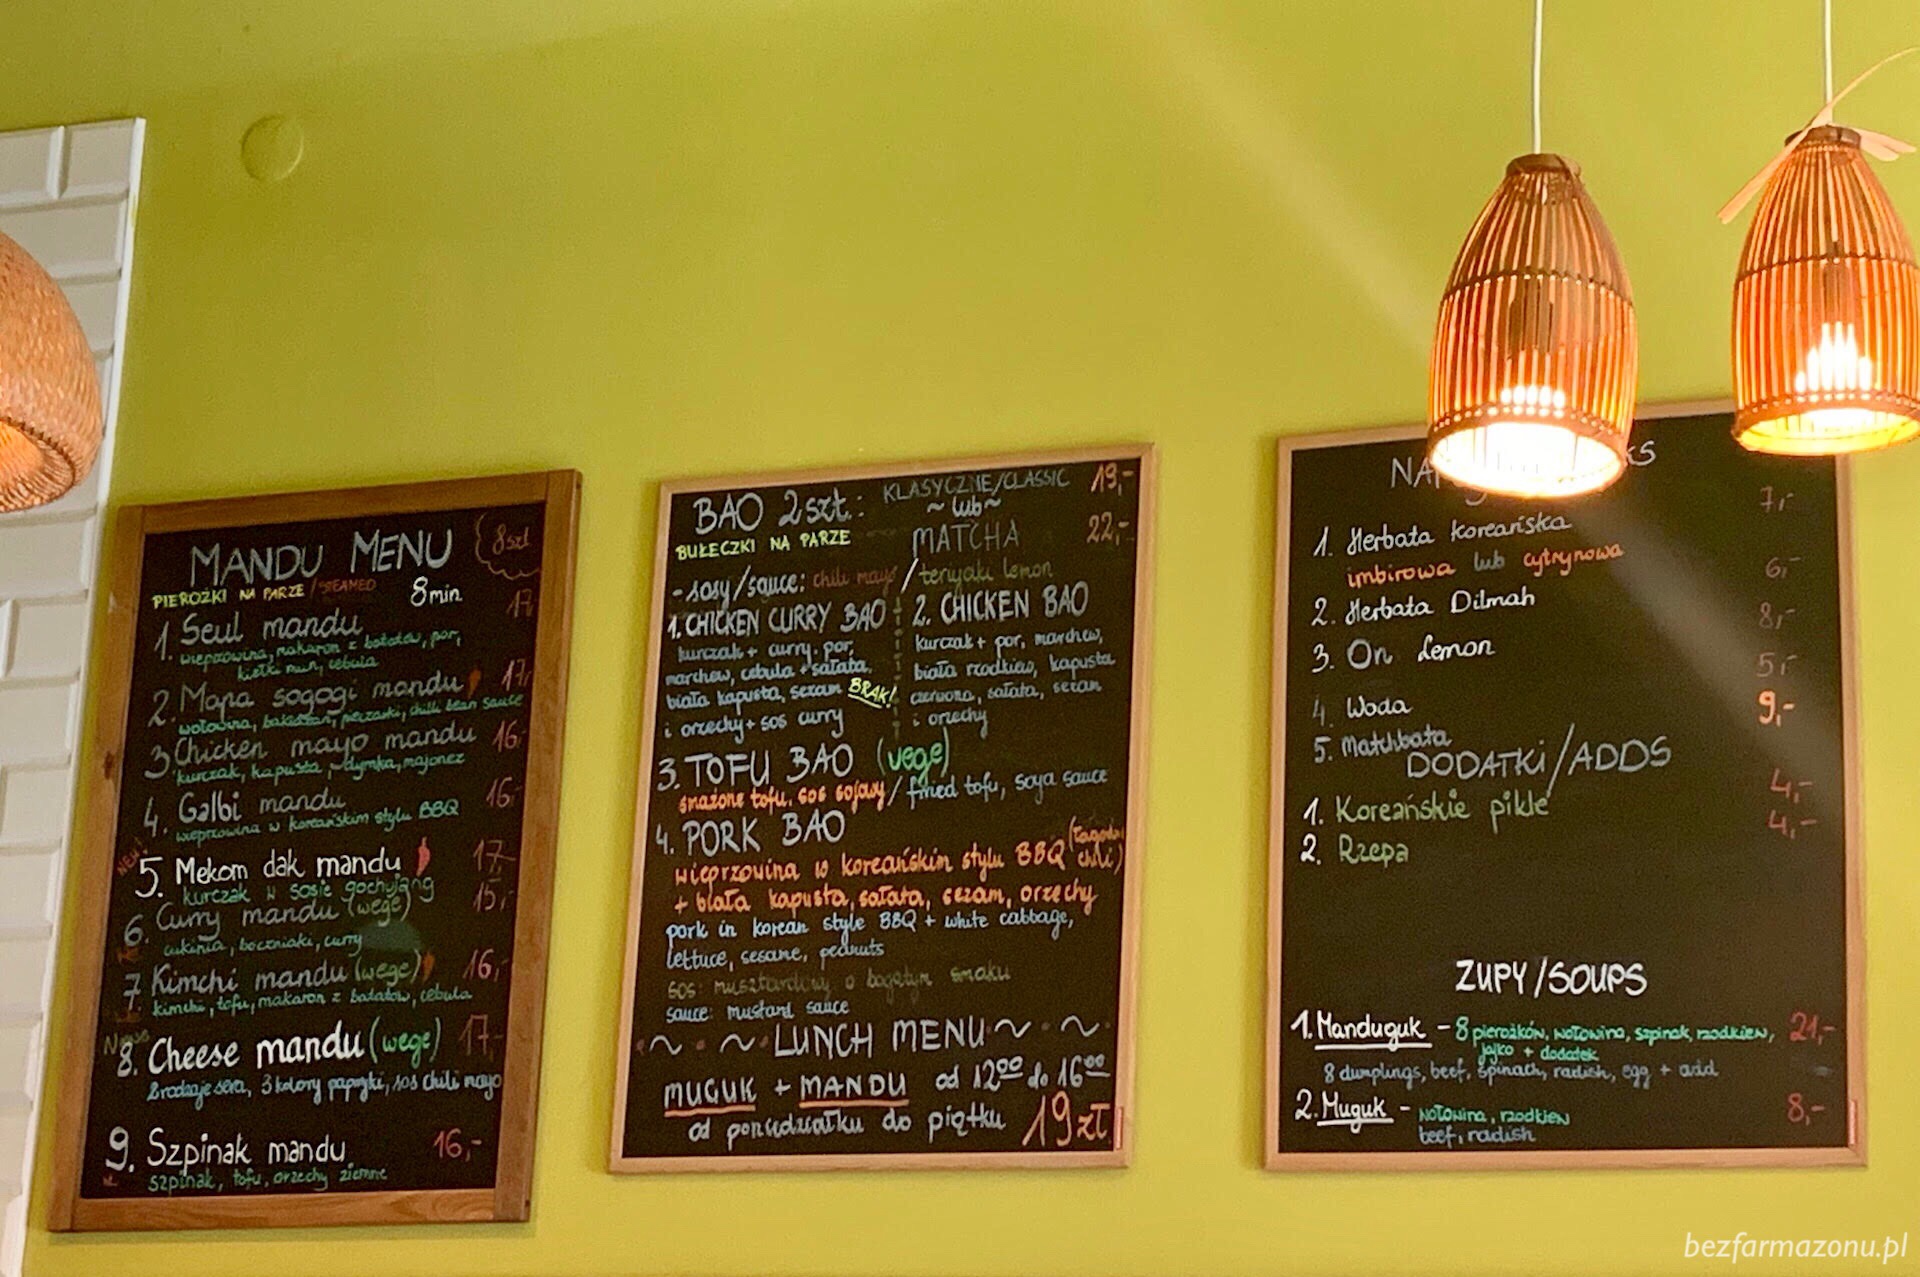 MANDU MENU
8szt
PIEROŻKI NA PARZE / STEAMED
8 min
1. Seul mandu 17
wieprzowina, makaron z batatów, por,
kiełki mun, cebula
2. Mapa sogogi mandu 17,-
wołowina, bakłażan, pieczarki, chilli bean sauce
3 Chicken mayo mandu 16,-
kurczak, kapusta, dymka, majonez
4. Galbi mandu 16,-
wieprzowina w koreańskim stylu BBQ
NEW!
5. Mekom dak mandu 17,-
kurczak w sosie gochujang
6. Curry mandu (wege) 15,-
cukinia, boczniaki, curry
7. Kimchi mandu (wege) 16,-
kimchi, tofu, makaron z batatów, cebula
8. Cheese mandu (wege) 17,-
2 rodzaje sera, 3 kolory papryki, sos chili mayo
9. Szpinak mandu 16,-
szpinak, tofu, orzechy ziemne
BAO 2szt.: KLASYCZNE/CLASSIC 19,-
~ lub ~
BUŁECZKI NA PARZE MATCHA 22,-
- sosy/sauce: chili mayo / teriyaki lemon
1. CHICKEN CURRY BAO
kurczak + curry, por,
marchew, cebula + sałata,
biała kapusta, sezam
i orzechy + sos curry
BRAK!
2. CHICKEN BAO
kurczak + por, marchew,
biała rzodkiew, kapusta
czerwona, sałata, sezam
i orzechy
3. TOFU BAO (wege)
smażone tofu, sos sojowy / fried tofu, soya sauce
4. PORK BAO
wieprzowina w koreańskim stylu BBQ (łagodne chili)
+ biała kapusta, sałata, sezam, orzechy
pork in korean style BBQ + white cabbage,
lettuce, sesame, peanuts
sos: musztardowy o bogatym smaku
sauce: mustard sauce
~ ~ LUNCH MENU ~ ~
MUGUK + MANDU od 12⁰⁰ do 16⁰⁰
od poniedziałku do piątku 19 zł
1. Herbata koreańska 7,-
imbirowa lub cytrynowa
2. Herbata Dilmah 6,-
3. On Lemon 8,-
4. Woda 5,-
5. Matchbata 9,-
DODATKI/ADDS
1. Koreańskie pikle 4,-
2. Rzepa 4,-
ZUPY/SOUPS
1. Manduguk - 8 pierożków, wołowina, szpinak, rzodkiew, 21,-
jajko + dodatek
8 dumplings, beef, spinach, radish, egg + add
2. Muguk - wołowina, rzodkiew 8,-
beef, radish
bezfarmazonu.pl